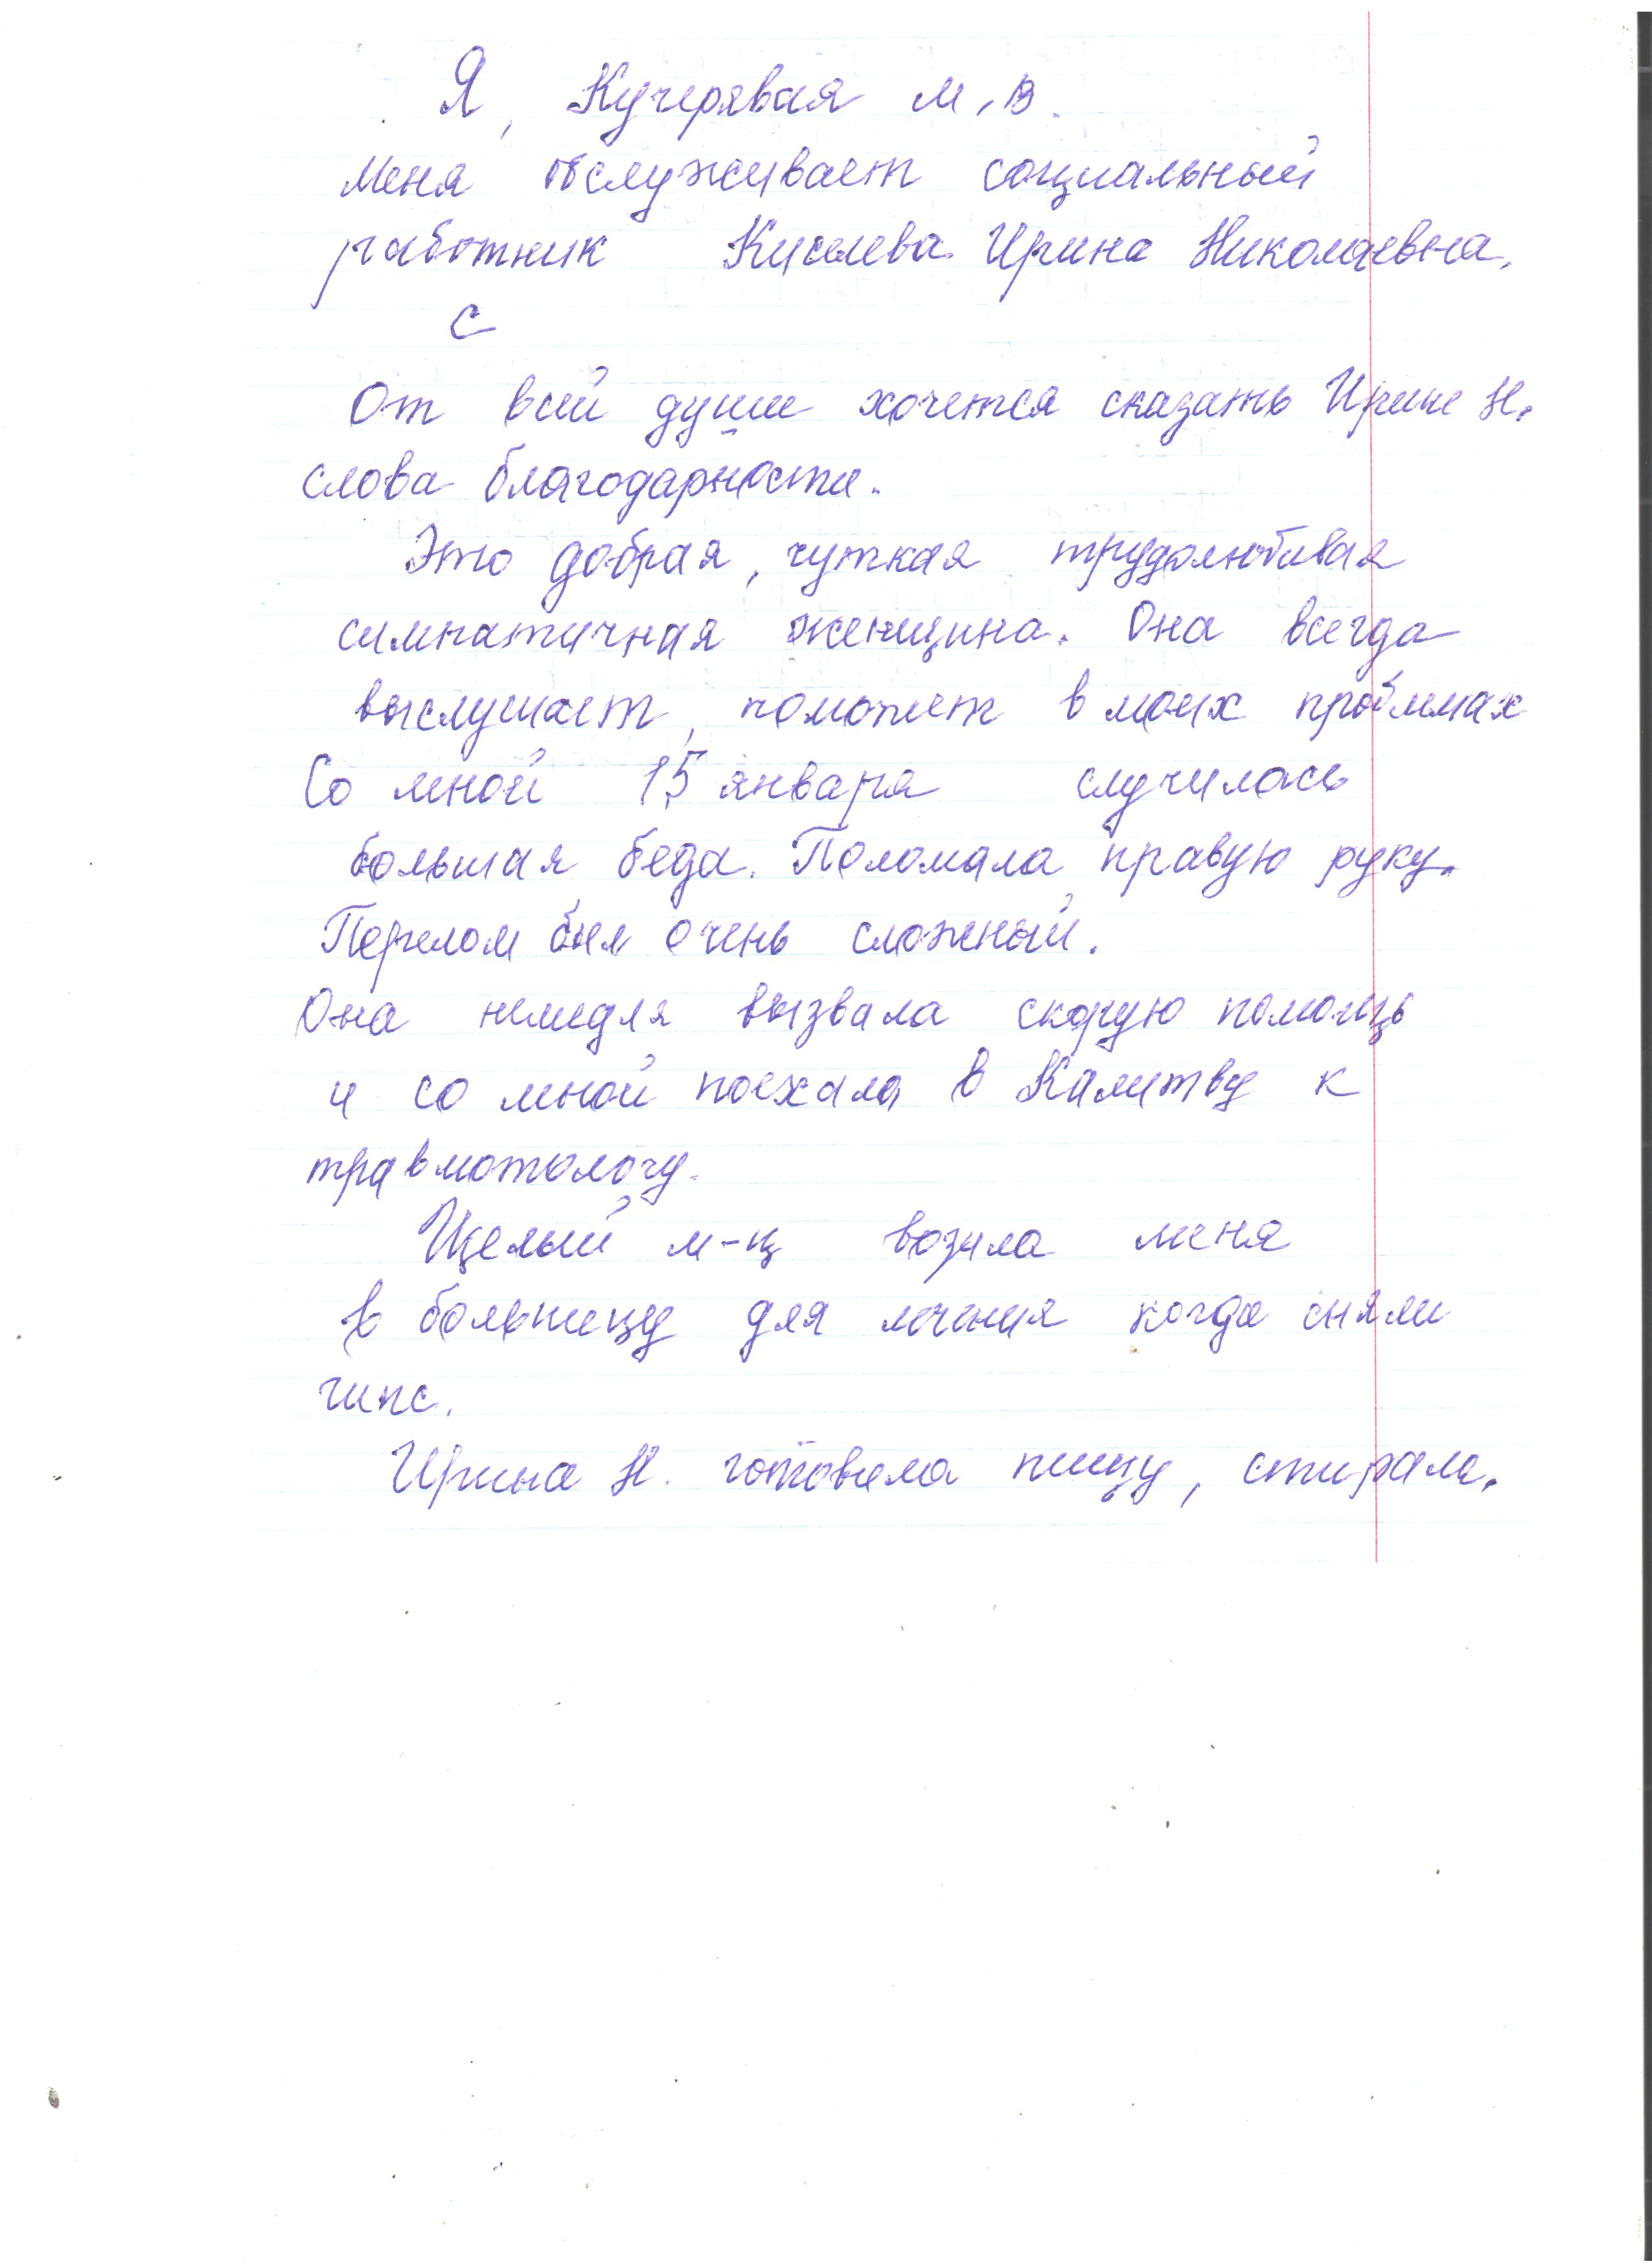 Я, Кучерявая М, В.
Меня обслуживает социальный
работник Киселева Ирина Николаевна.
С
От всей души хочется сказать Ирине Н.
слова благодарности.
Это добрая, чуткая трудолюбивая
симпатичная женщина. Она всегда
выслушает, поможет в моих проблемах
Со мной 15 января случилась
большая беда. Поломала правую руку.
Перелом был очень сложный.
Она немедля вызвала скорую помощь
и со мной поехала в Калитву к
травмотологу.
Щелый м-ц возила меня
в больницу для лечения когда сняли
гипс.
Ирина Н. готовила пищу, стирала.